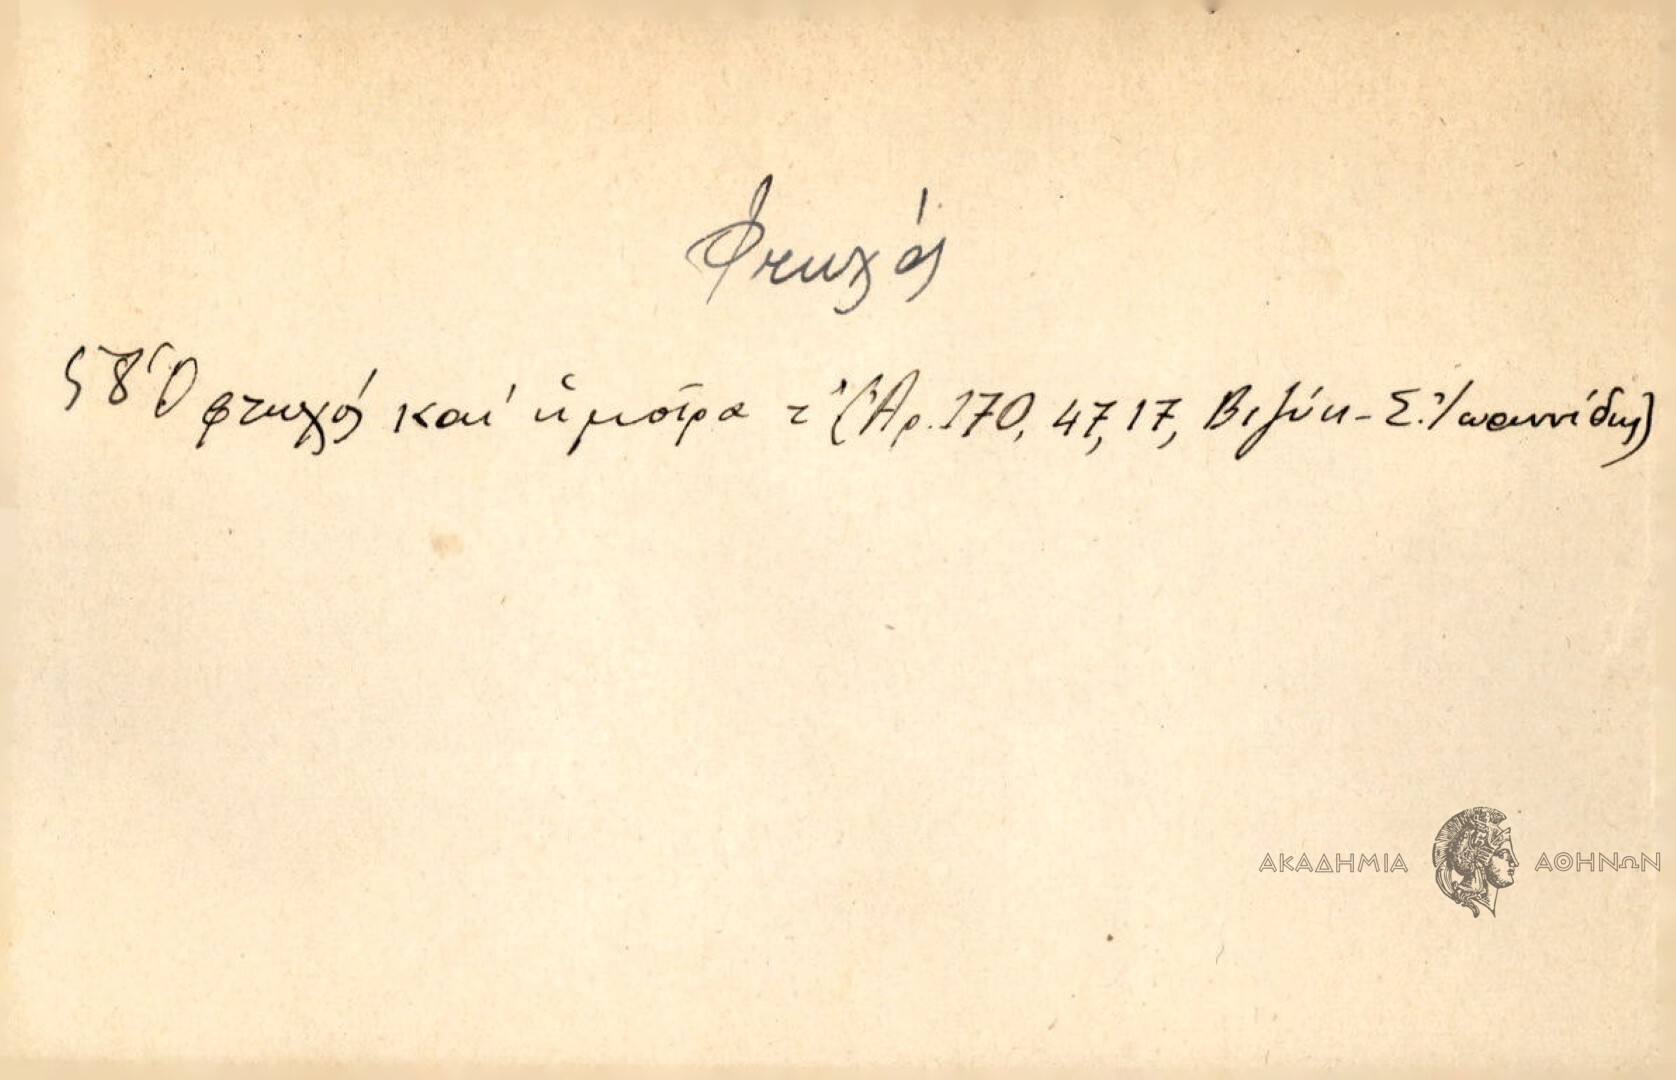 Φτωχός
Ὁ φτωχός καί ἡ μοῖρα τ' (Ἀρ. 170, 47, 17, Βιζύη - Σ. Ἰωαννίδης)
ΑΚΑΔΗΜΙΑ ΑΘΗΝΩΝ